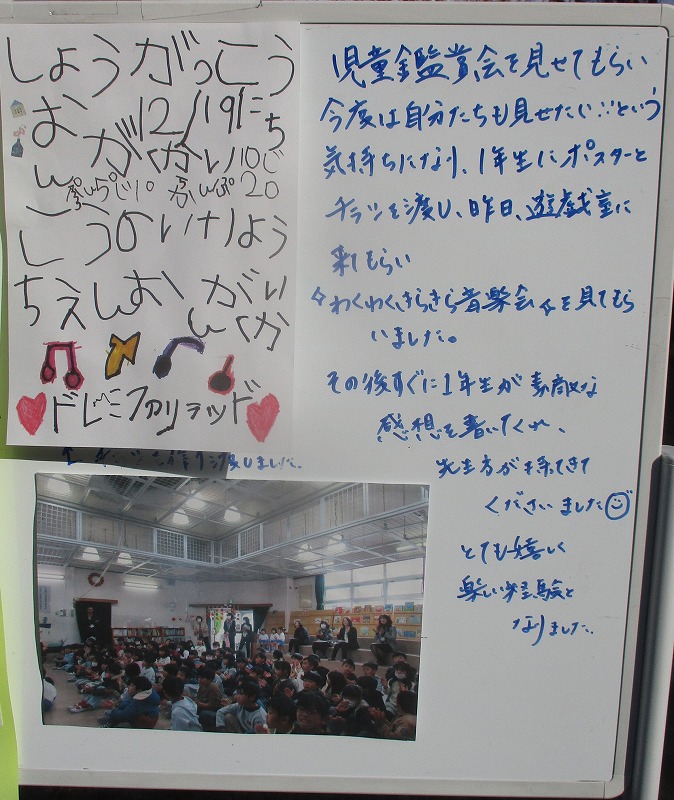 しょうがっこう
お 12/19にち
がくかい 10じ
20
こうのいけよう
ちえしお
がい
ドレミファソラシド
児童鑑賞会を見せてもらい
今度は自分たちも見せたい!!という
気持ちになり、1年生にポスターと
チラシを渡し、昨日、遊戯室に
来てもらい
わくわくきらきら音楽会 を見てもら
いました。
その後すぐに1年生が素敵な
感想を書いてくれ、
先生方が持ってきて
くださいました
とても嬉しく
楽しい経験と
なりました。
↑ を作り渡しました。